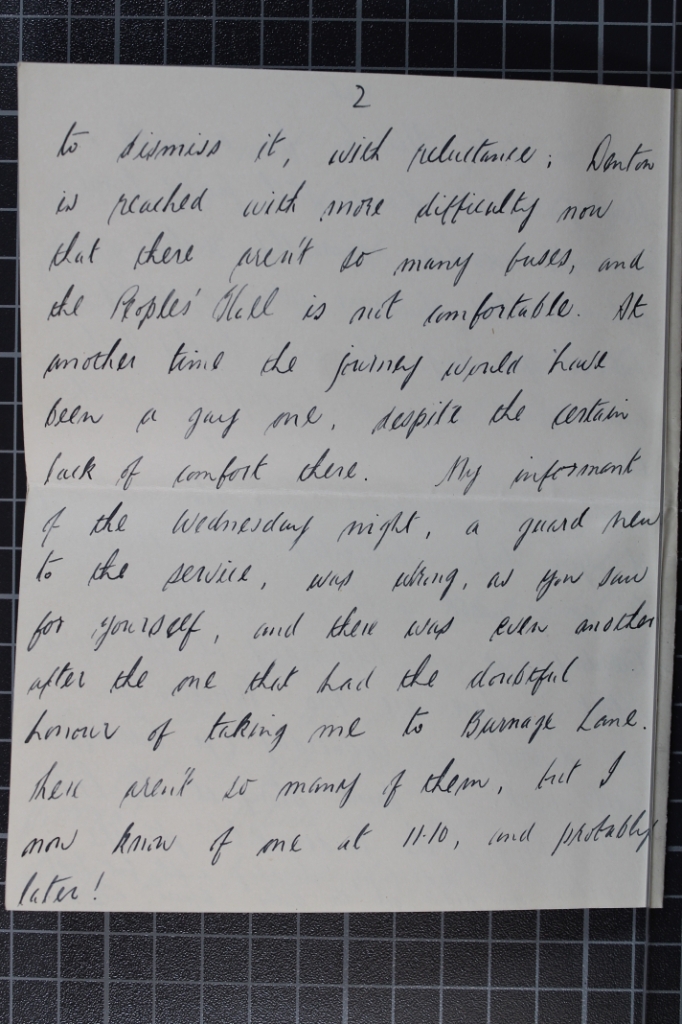 2
to dismiss it, with reluctance; Denton
is reached with more difficulty now
that there aren't so many buses, and
the Peoples' Hall is not comfortable. At
another time the journey would have
been a gay one, despite the certain
lack of comfort there. My informant
of the Wednesday night, a guard new
to the service, was wrong, as you saw
for yourself, and there was even another
after the one that had the doubtful
honour of taking me to Burnage Lane.
There aren't so many of them, but I
now know of one at 11.10, and probably
later!